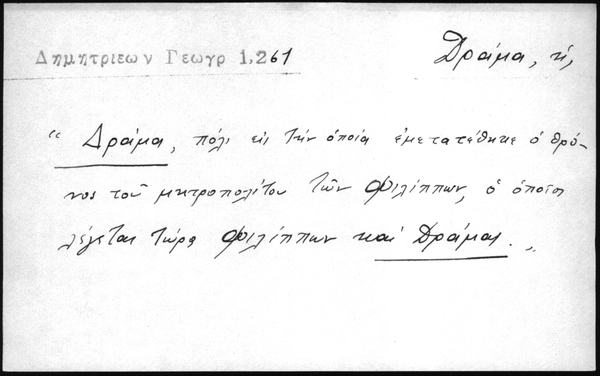 Δημητριεων Γεωγρ 1,261
Δράμα, ἡ,
“ Δράμα, πόλι εἰς τὴν ὁποία ἐμετατέθηκε ὁ θρό-
νος τοῦ μητροπολίτου τῶν Φιλίππων, ὁ ὁποῖος
λέγεται τώρα Φιλίππων καὶ Δράμας. „